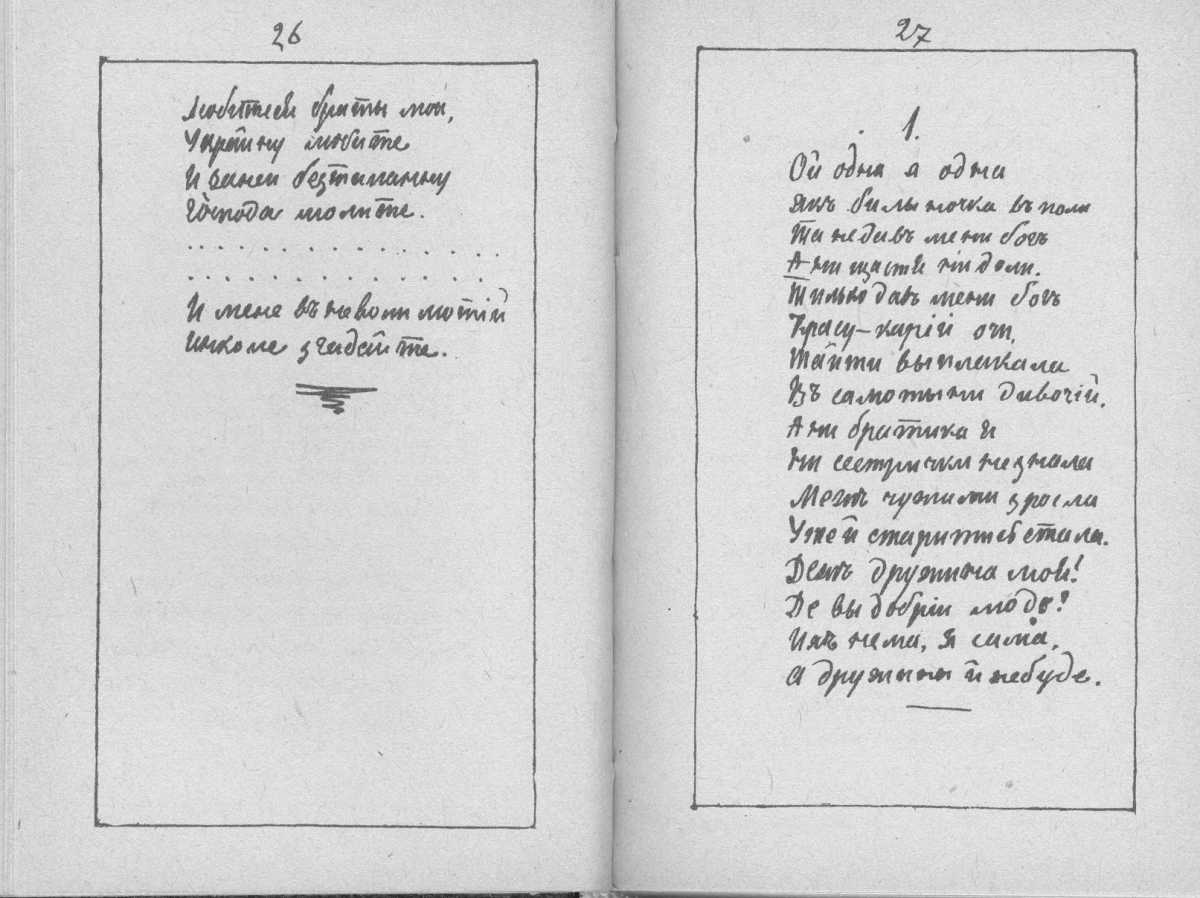 26
Любитеся браты мои,
Украину любите
И занеи безталанну
Господа молите.
. . . . . . . . . . . . . .
. . . . . . . . . . . . . .
И мене въ неволи лютій
Инколе згадайте.
27
1.
Ой одна я одна
Якъ былыночка въ поли
Та недавъ мени богъ
А ни щастя ни доли.
Тилько давъ мени богъ
Красу-карій очи,
Та й ти выплакала
Въ самотыни дивочій.
А ни братика я
Ни сестрички незнала
Межъ чужими зросла
Уже й старитися стала.
Дежъ дружина моя!
Де вы добріи люде?
Ихъ нема, я сама,
А дружины й небуде.